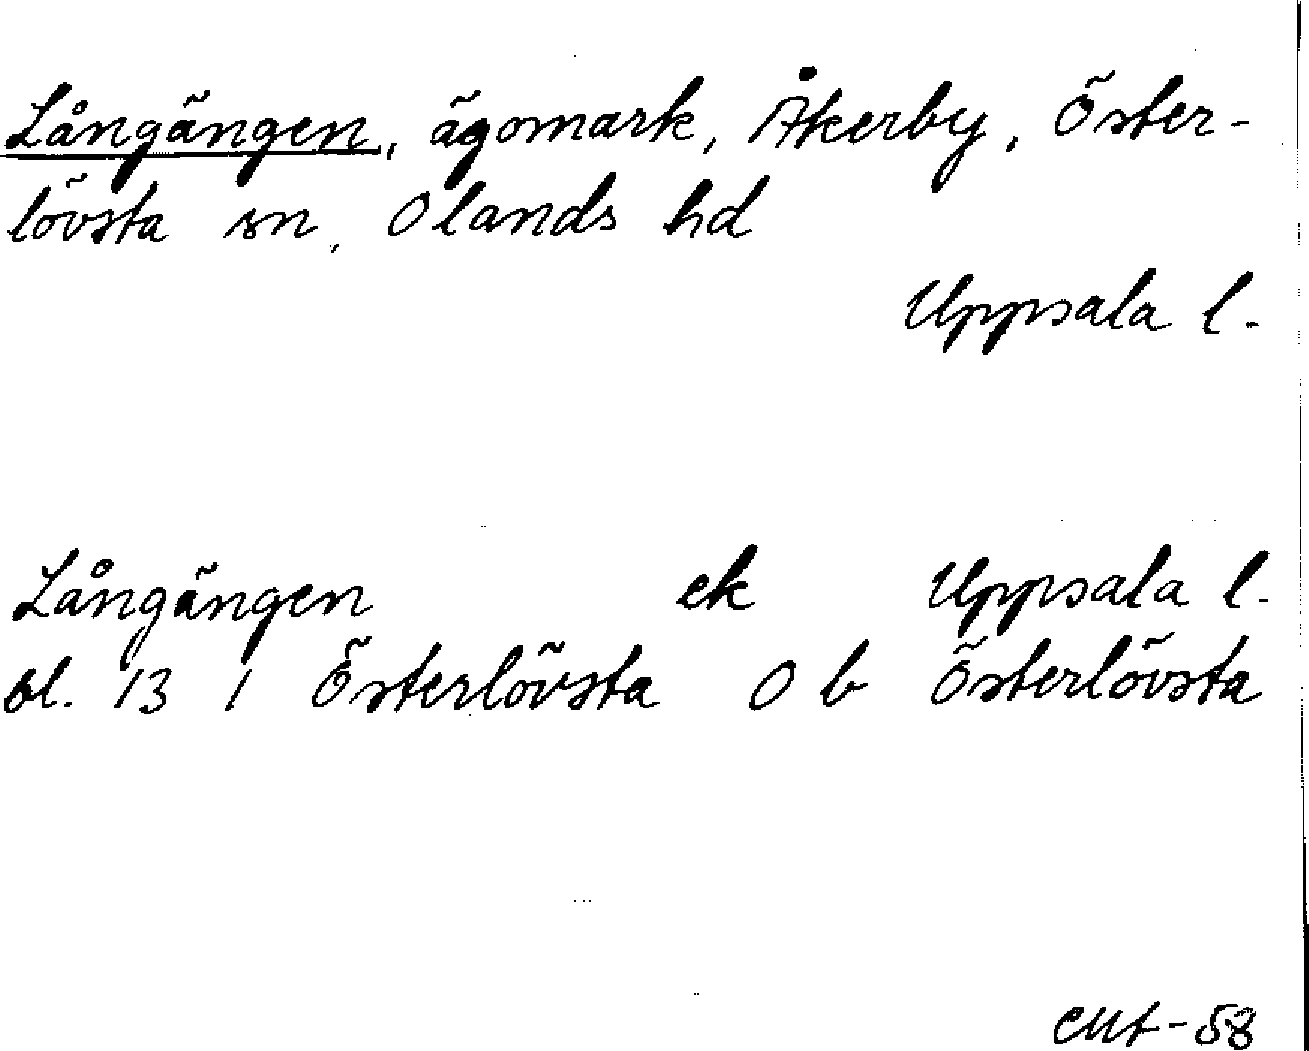 Långängen, ägomark, Åkerby, Öster-
lövsta sn, Olands hd
Uppsala l.
Långängen ek Uppsala l.
bl. 13 1 Österlövsta O b Österlövsta